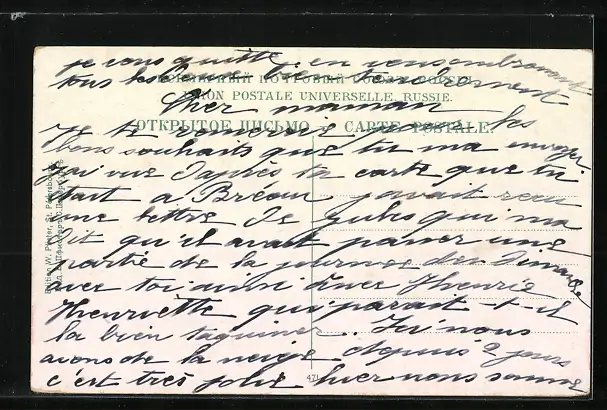 je vous quitte en vous embrassant
tous les deux bien tendrement
ВСЕМІРНЫЙ ПОЧТОВЫЙ СОЮЗЪ. РОССІЯ.
UNION POSTALE UNIVERSELLE. RUSSIE.
Cher maman
ОТКРЫТОЕ ПИСЬМО CARTE POSTALE.
Je te remercie pour les
bons souhaits que tu ma envoyer
j'ai vue d'après ta carte que tu
étais a avait recu
une lettre de Jules qui m'a
dit qu'il avait passer une
partie de la journee du Dimanche
avec toi ainsi avec Henrie
Henriette qui parait-t-il
la bien taquiner. Ici nous
avons de la neige depuis 2 jours
c'est très jolie hier nous somme
471